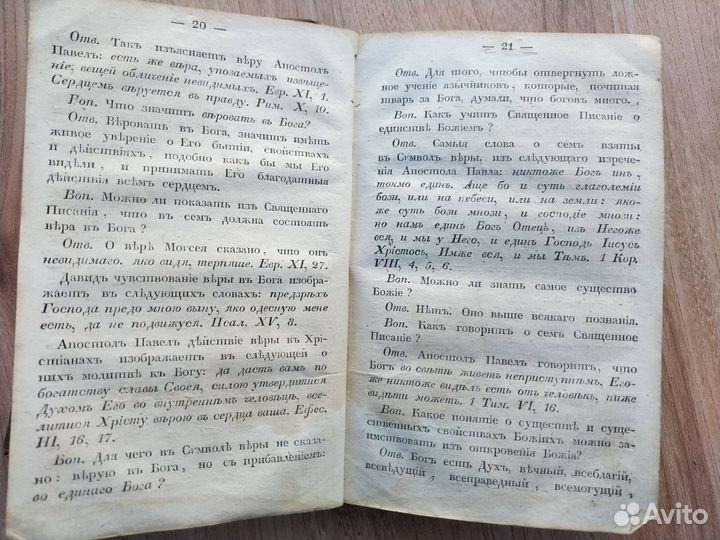 — 20 —
Отв. Такъ изъясняетъ вѣру Апостолъ
Павелъ: есть же вѣра, уповаемыхъ извѣще-
ніе, вещей обличеніе невидимыхъ. Евр. XI, 1.
Сердцемъ вѣруется въ правду. Рим. X, 10.
Воп. Что значитъ вѣровать въ Бога?
Отв. Вѣровать въ Бога, значитъ имѣть
живое увѣреніе о Его бытіи, свойствахъ
и дѣйствіяхъ, подобно какъ бы мы Его
видѣли, и принимать Его благодатныя
дѣйствія всѣмъ сердцемъ.
Воп. Можно ли показать изъ Священнаго
Писанія, что въ семъ должна состоять
вѣра въ Бога?
Отв. О вѣрѣ Моѵсея сказано, что онъ
невидимаго, яко видя, терпяше. Евр. XI, 27.
Давидъ чувствованіе вѣры въ Бога изобра-
жаетъ въ слѣдующихъ словахъ: предзрѣхъ
Господа предо мною выну, яко одесную мене
есть, да не подвижуся. Псал. XV, 8.
Апостолъ Павелъ дѣйствіе вѣры въ Хрі-
стіанахъ изображаетъ въ слѣдующей о
нихъ молитвѣ къ Богу: да дастъ вамъ по
богатству славы Своея, силою утвердитися
Духомъ Его во внутреннѣмъ человѣцѣ, все-
литися Хрісту вѣрою въ сердца ваша. Ефес.
III, 16, 17.
Воп. Для чего въ Сѵмволѣ вѣры не сказа-
но: вѣрую въ Бога, но съ прибавленіемъ:
во единаго Бога?
— 21 —
Отв. Для того, чтобы отвергнуть лож-
ное ученіе язычниковъ, которые, почитая
тварь за Бога, думали, что боговъ много.
Воп. Какъ учитъ Священное Писаніе о
единствѣ Божіемъ?
Отв. Самыя слова о семъ взяты
въ Сѵмволъ вѣры, изъ слѣдующаго изрече-
нія Апостола Павла: никтоже Богъ инъ,
токмо единъ. Аще бо и суть глаголеміи
бози, или на небеси, или на земли: яко-
же суть бози мнози, и господіе мнози:
но намъ единъ Богъ Отецъ, изъ Негоже
вся, и мы у Него, и единъ Господь Іисусъ
Хрістосъ, Имже вся, и мы Тѣмъ. 1 Кор.
VIII, 4, 5, 6.
Воп. Можно ли знать самое существо
Божіе?
Отв. Нѣтъ. Оно выше всякаго познанія.
Воп. Какъ говоритъ о семъ Священное
Писаніе?
Отв. Апостолъ Павелъ говоритъ, что
Богъ во свѣтѣ живетъ неприступнѣмъ, Его-
же никтоже видѣлъ есть отъ человѣкъ, ниже
видѣти можетъ. 1 Тим. VI, 16.
Воп. Какое понятіе о существѣ и суще-
ственныхъ свойствахъ Божіихъ можно за-
имствовать изъ откровенія Божія?
Отв. Богъ есть Духъ, вѣчный, всеблагій,
всевѣдущій, всеправедный, всемогущій,
Avito